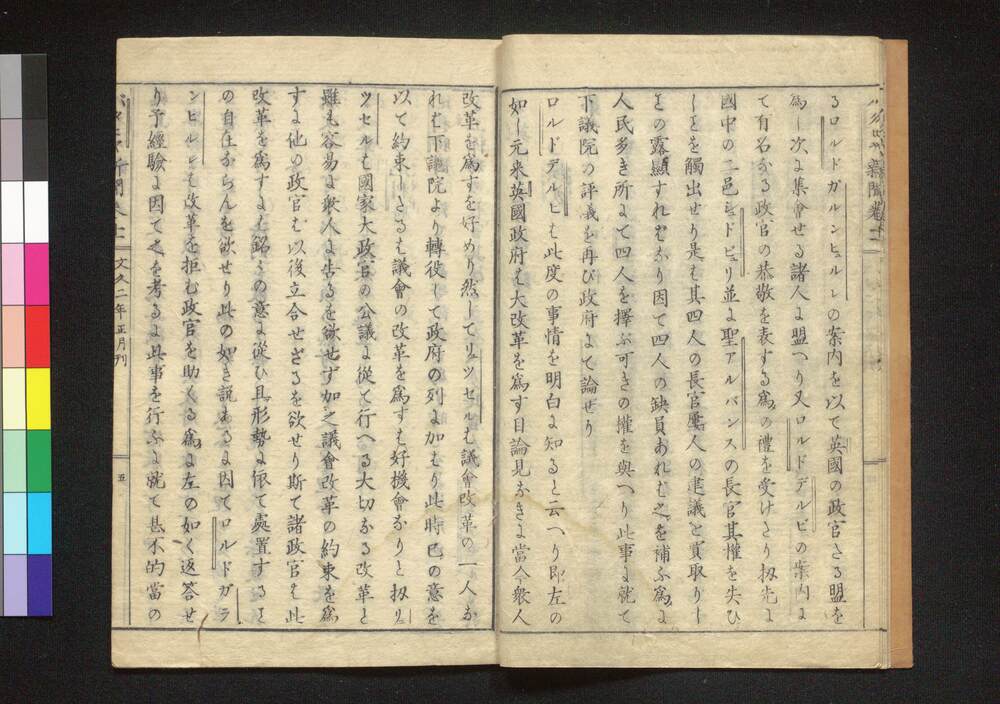 るロルドガルンヒュルレの案内を以て英國の政官さる盟を
為し次よ集會せる諸人よ盟へり又ロルドデルビの案内よ
て有名なる政官の恭敬を表する為の禮を受けさり扨先よ
國中の二邑シュドビュリ並よ聖アルバンスの長官其權を失ひ
しことを觸出せり是も其四人の長官屬人の建議と買取りし
ことの露顯すれむなり因て四人の缺員あれむ之を補ふ為よ
人民多き所よて四人を擇ぶ可きの權を與へり此事よ就て
下議院の評義を再び政府よて論せり
ロルドデルビも此度の事情を明白よ知ると云へり即左の
如し元来英國政府も大改革を為す目論見なきよ當今衆人
改革を為すを好めり然してリュツセルも議會改革の一人な
れむ下議院より轉役して政府の列よ加むり此時己の意を
以て約束しさるも議會の改革を為すも好機會なりと扨リュ
ツセルも國家大政官の公議よ從て行へる大切なる改革と
雖も容易よ衆人よ告るを欲せず加之議會改革の約束を為
すよ他の政官も以後立合せざるを欲せり斯て諸政官も此
改革を為すよも銘々の意よ從ひ且形勢よ依て處置すること
の自在ならんを欲せり此の如き説あるよ因てロルドガラ
ンヒルレも改革を拒む政官を助くる為よ左の如く返答せ
り予經驗よ因て之を考るよ此事を行ふよ就て甚不的當の
文久二年正月刊
五